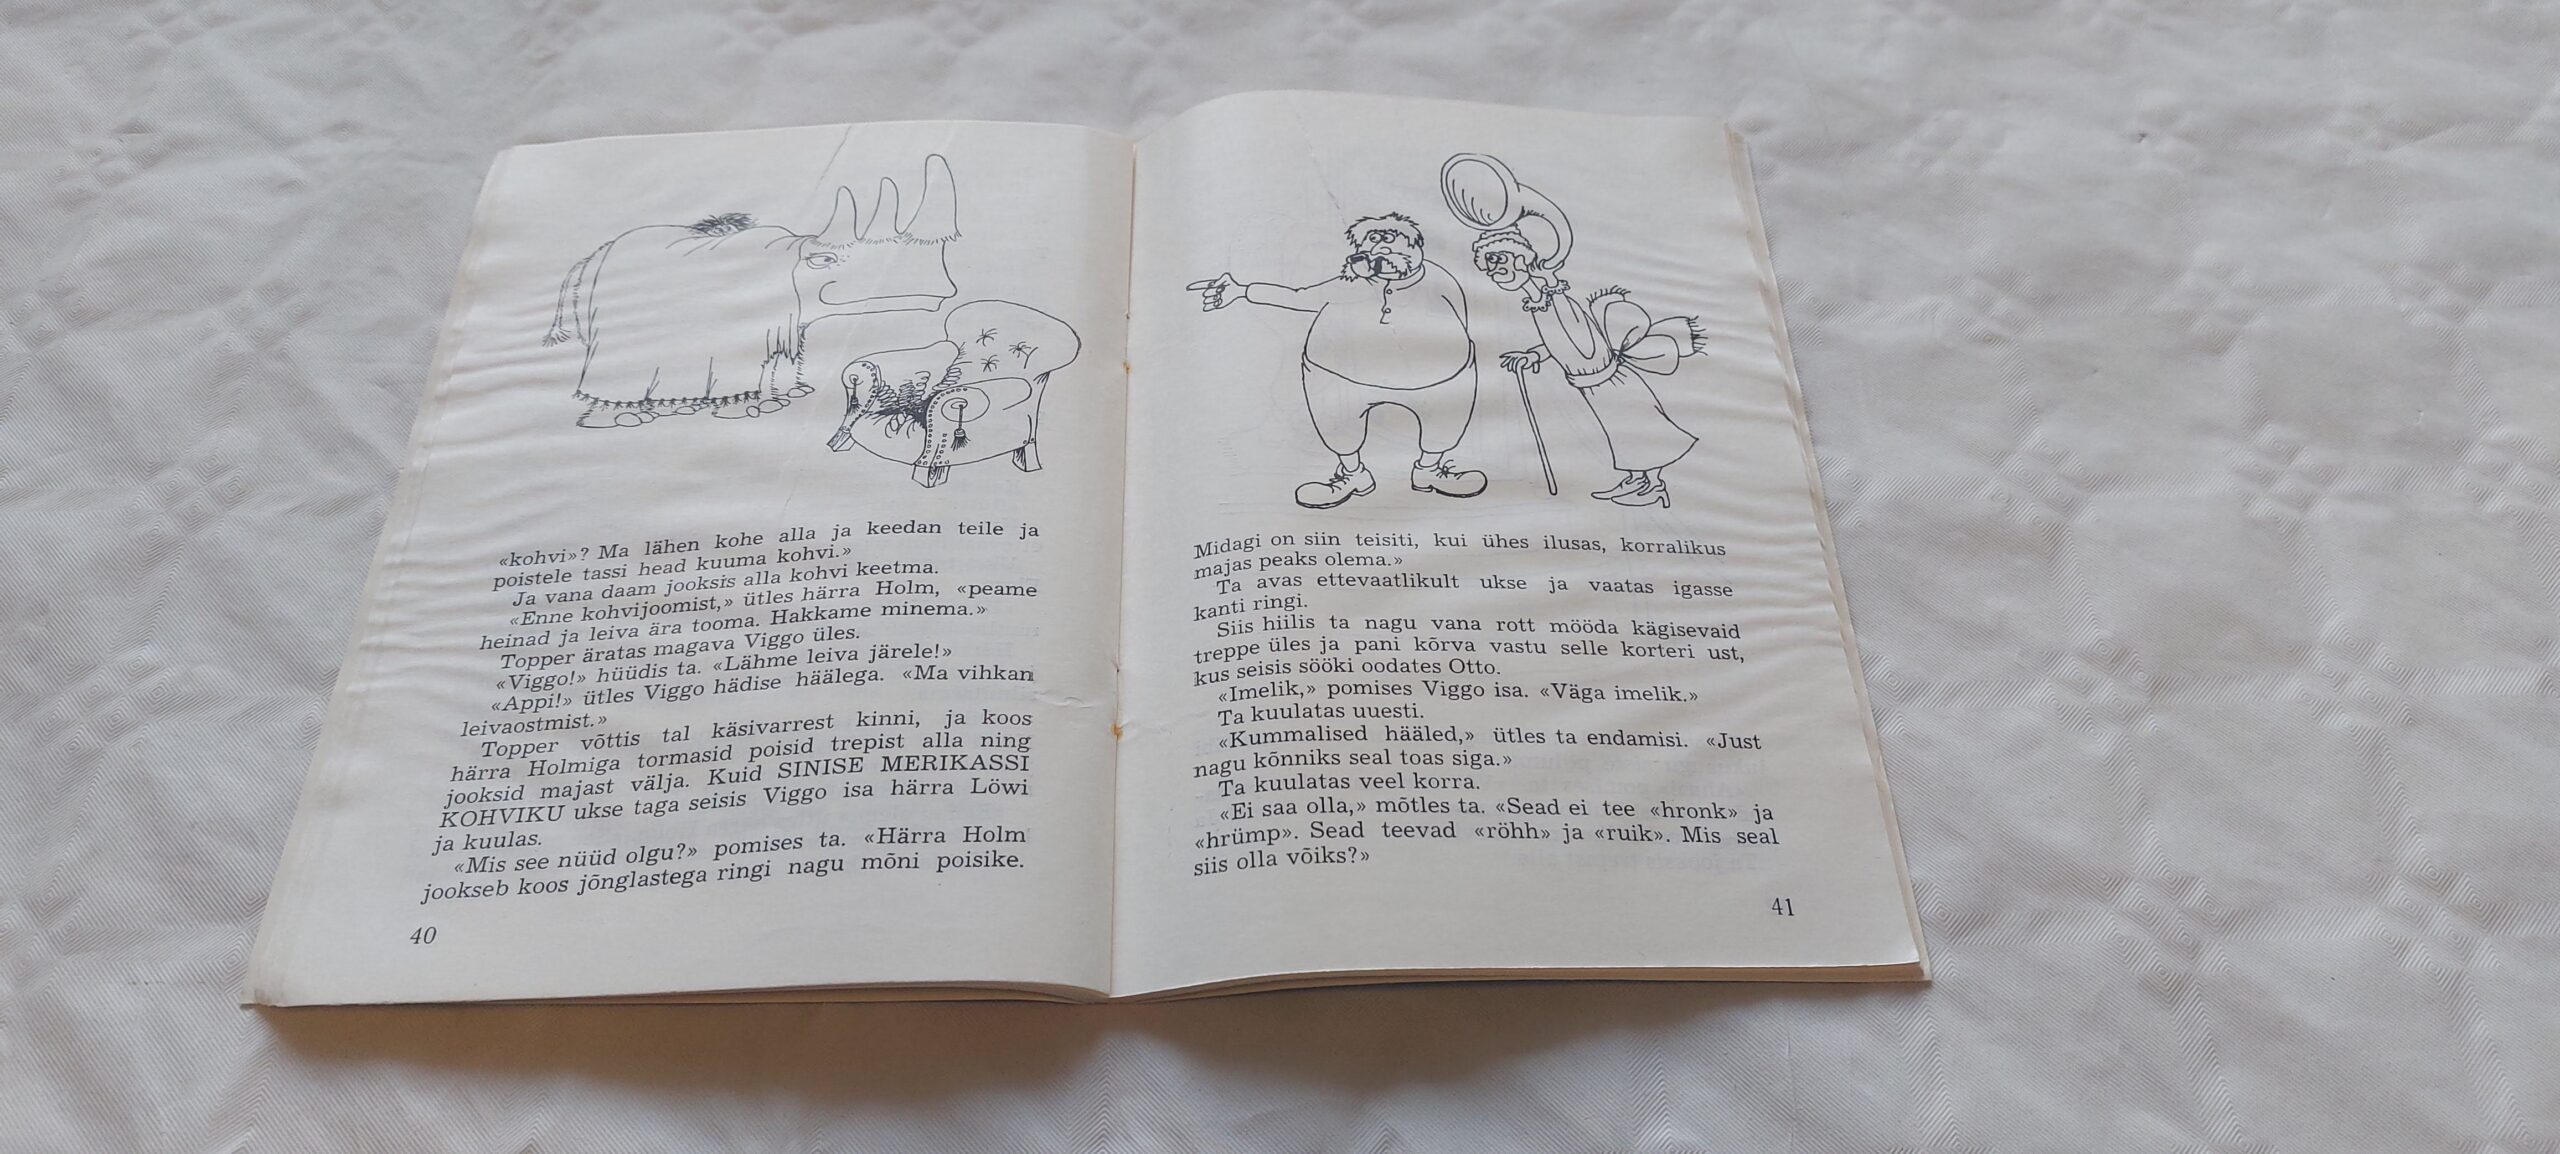 «kohvi»? Ma lähen kohe alla ja keedan teile ja
poistele tassi head kuuma kohvi.»
Ja vana daam jooksis alla kohvi keetma.
«Enne kohvijoomist,» ütles härra Holm, «peame
heinad ja leiva ära tooma. Hakkame minema.»
Topper äratas magava Viggo üles.
«Viggo!» hüüdis ta. «Lähme leiva järele!»
«Appi!» ütles Viggo hädise häälega. «Ma vihkan
leivaostmist.»
Topper võttis tal käsivarrest kinni, ja koos
härra Holmiga tormasid poisid trepist alla ning
jooksid majast välja. Kuid SINISE MERIKASSI
KOHVIKU ukse taga seisis Viggo isa härra Löwi
ja kuulas.
«Mis see nüüd olgu?» pomises ta. «Härra Holm
jookseb koos jõnglastega ringi nagu mõni poisike.
40
Midagi on siin teisiti, kui ühes ilusas, korralikus
majas peaks olema.»
Ta avas ettevaatlikult ukse ja vaatas igasse
kanti ringi.
Siis hiilis ta nagu vana rott mööda kägisevaid
treppe üles ja pani kõrva vastu selle korteri ust,
kus seisis sööki oodates Otto.
«Imelik,» pomises Viggo isa. «Väga imelik.»
Ta kuulatas uuesti.
«Kummalised hääled,» ütles ta endamisi. «Just
nagu kõnniks seal toas siga.»
Ta kuulatas veel korra.
«Ei saa olla,» mõtles ta. «Sead ei tee «hronk» ja
«hrümp». Sead teevad «röhh» ja «ruik». Mis seal
siis olla võiks?»
41